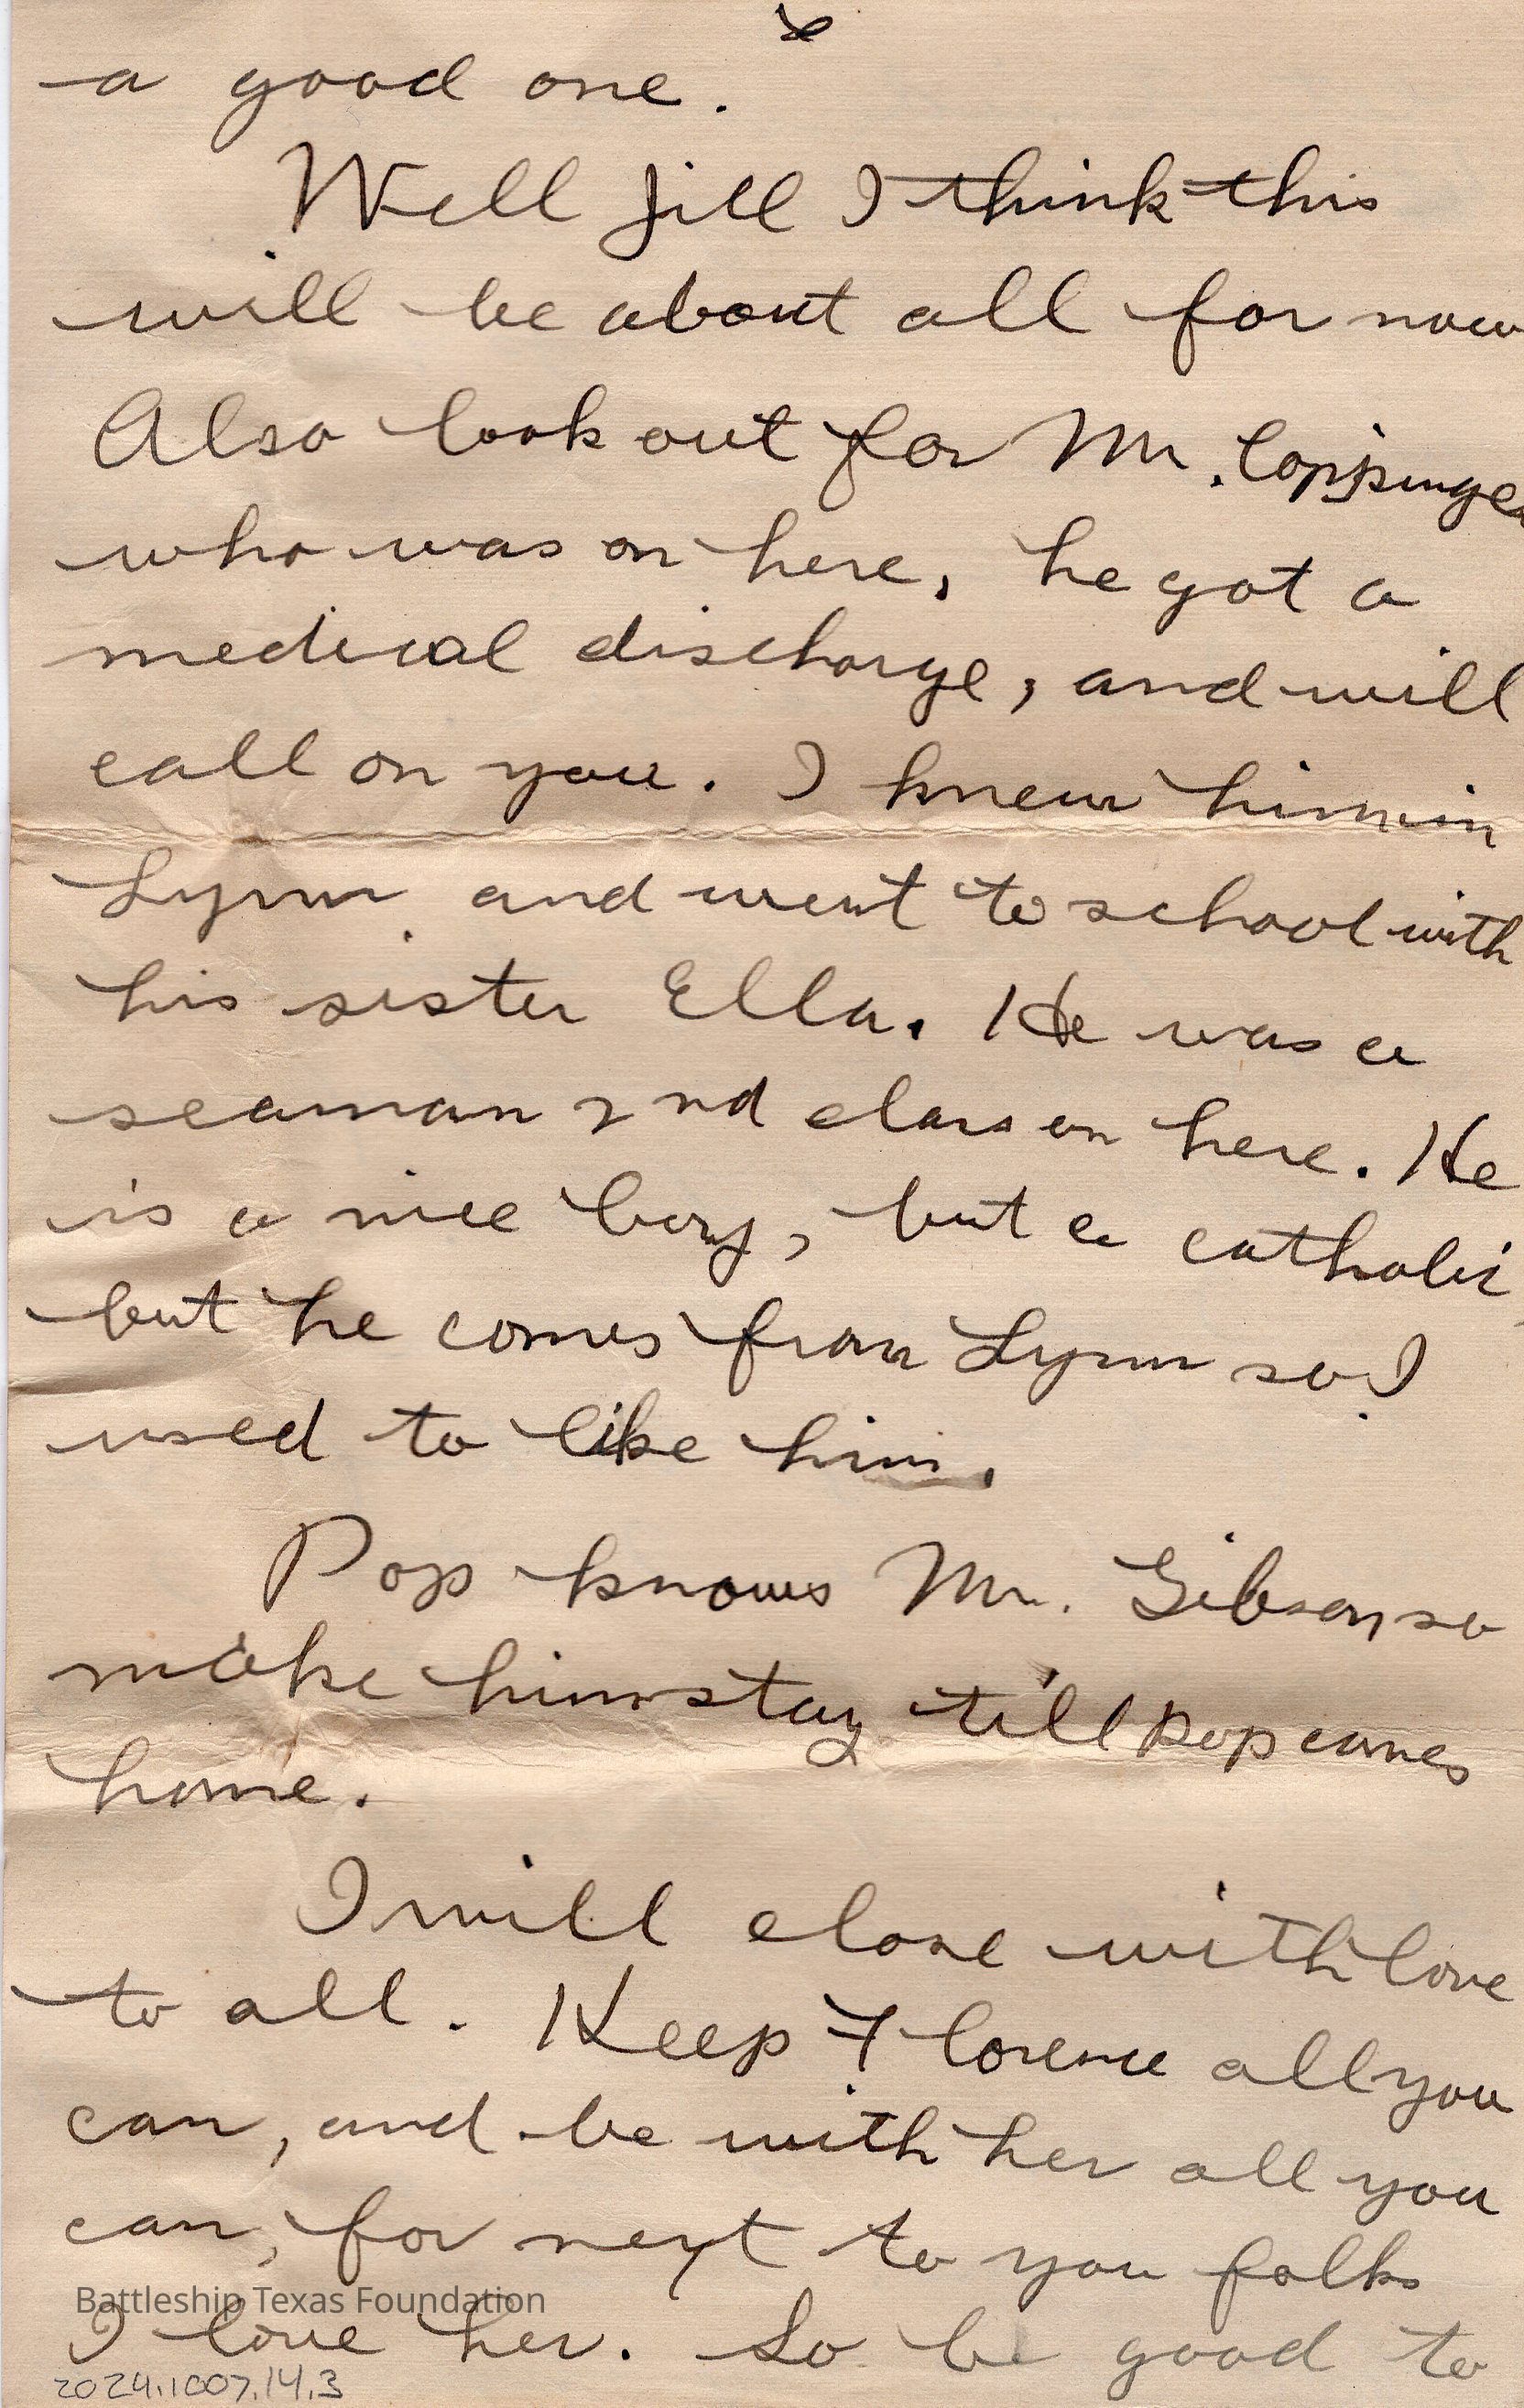 a good one.
Well Jill I think this
will be about all for now
Also look out for Mr. Coppinger
who was on here, he got a
medical discharge, and will
call on you. I knew him in
Lynn and went to school with
his sister Ella. He was a
seaman 2nd class on here. He
is a nice boy, but a catholic,
but he comes from Lynn so I
used to like him.
Pop knows Mr. Gibson so
make him stay till pop comes
home.
I will close with love
to all. Keep Florence all you
can, and be with her all you
can, for next to you folks
Battleship Texas Foundation
I love her. So be good to
2024.1007.14.3